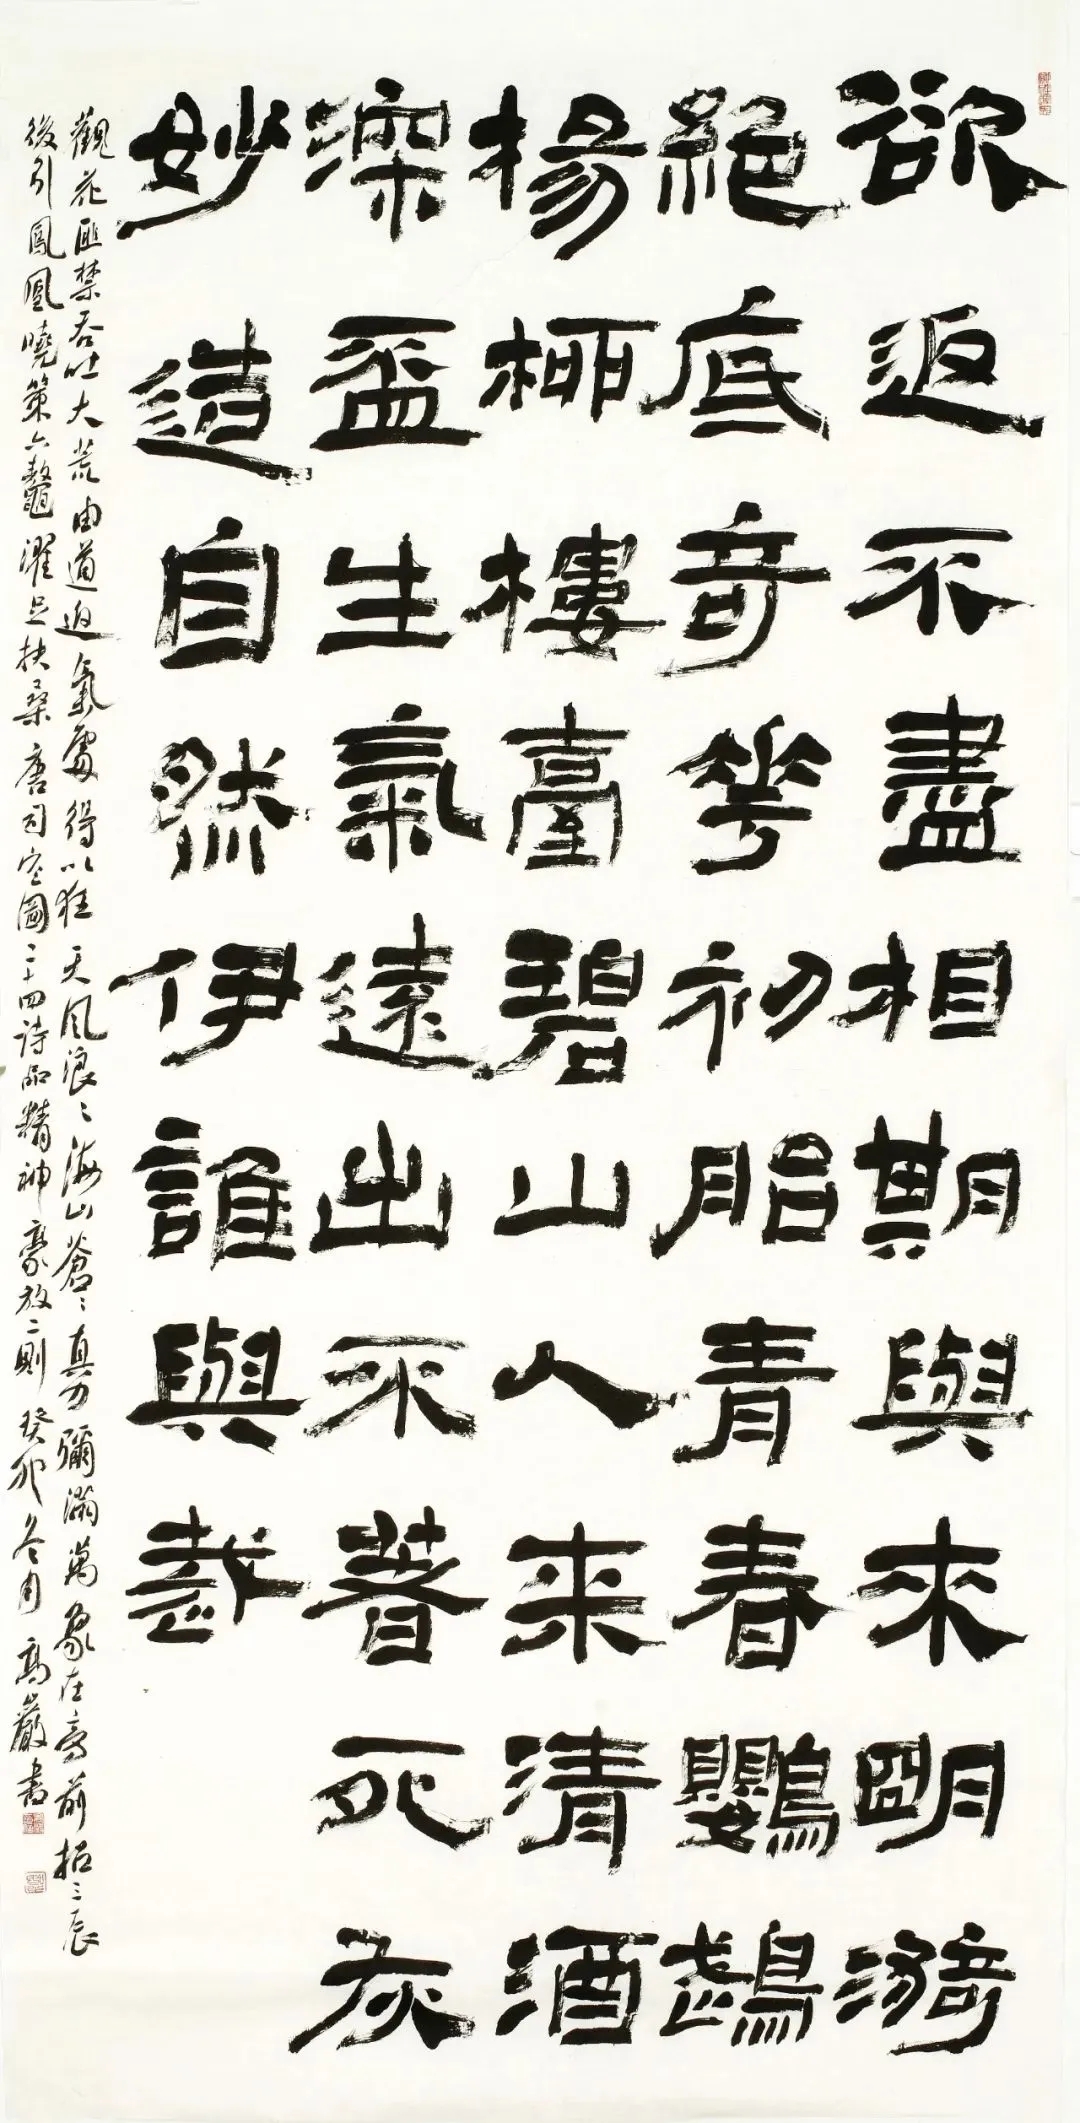 欲返不盡相期與來明漪
絕底奇華初胎青春鸚鵡
楊柳樓臺碧山人来清酒
深盃生氣遠出不著死灰
妙造自然伊誰與裁
觀花匪禁吞吐大荒由道返氣處得以狂天風浪〻海山蒼〻真力彌滿萬象在旁前招三辰
後引鳳凰曉策六鼇濯足扶桑唐司空圖二十四詩品精神豪放二則癸卯冬月高嚴書